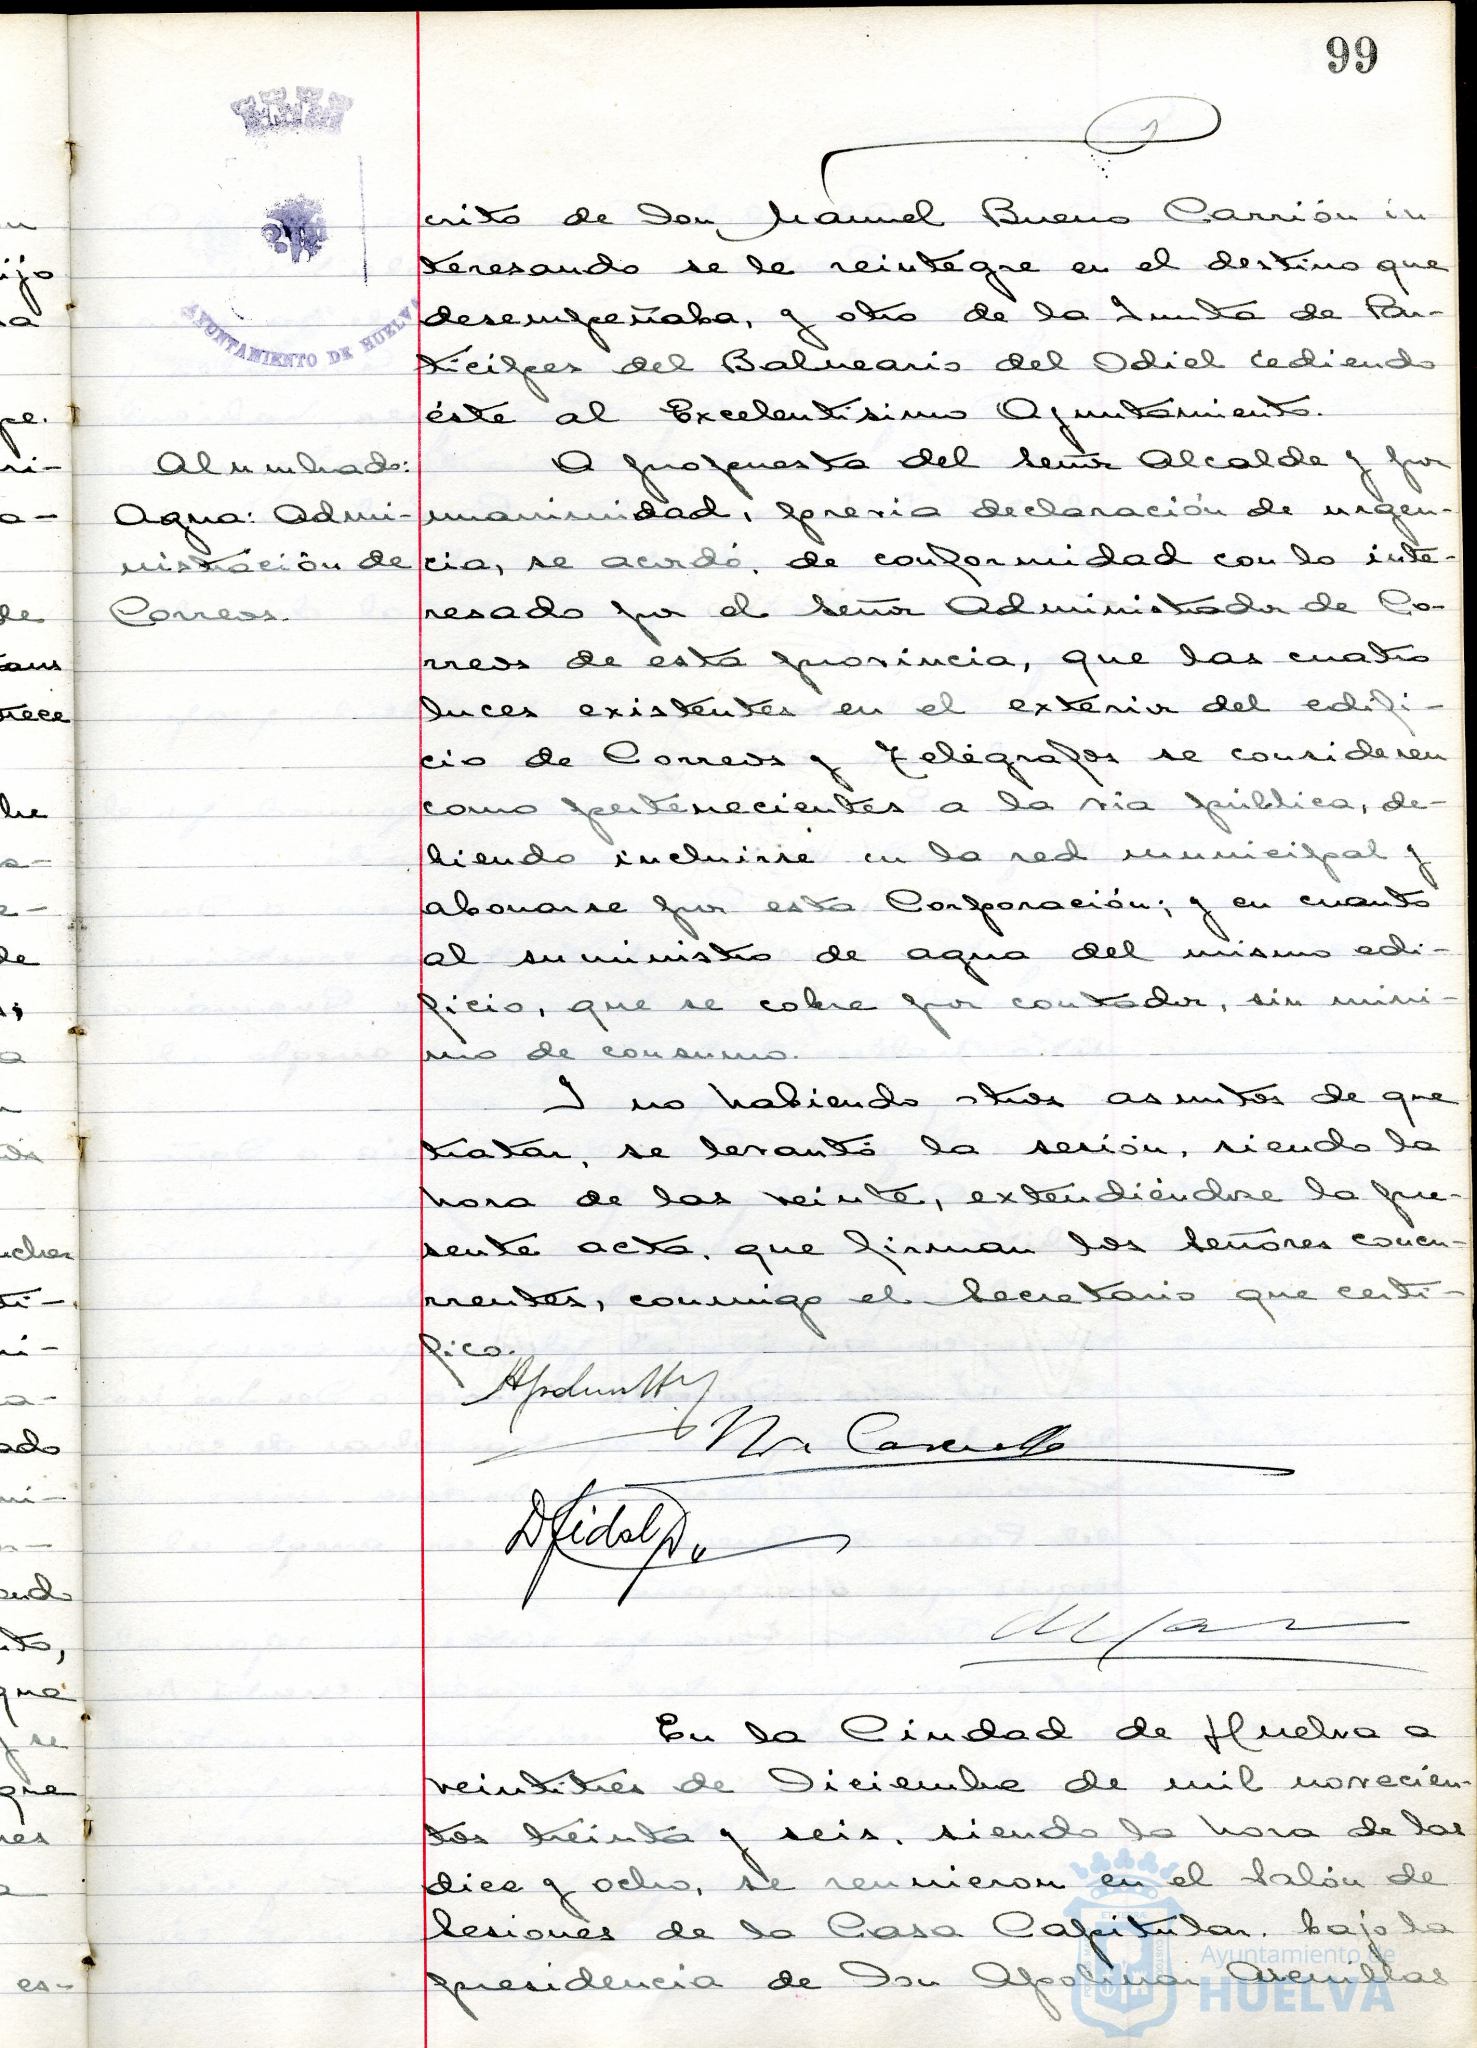 99
AYUNTAMIENTO DE HUELVA
crito de Don Manuel Bueno Carrión in
teresando se le reintegre en el destino que
desempeñaba, y otro de la Junta de Par-
tícipes del Balneario del Odiel cediendo
éste al Excelentísimo Ayuntamiento.
Alumbrado:
Agua: Admi-
nistración de
Correos.
A propuesta del Señor Alcalde y por
unanimidad, previa declaración de urgen-
cia, se acordó, de conformidad con lo inte-
resado por el Señor Administrador de Co-
rreos de esta provincia, que las cuatro
luces existentes en el exterior del edifi-
cio de Correos y Telégrafos se consideren
como pertenecientes a la via pública, de-
biendo incluirse en la red municipal y
abonarse por esta Corporación; y en cuanto
al suministro de agua del mismo edi-
ficio, que se cobre por contador, sin míni-
mo de consumo.
Y no habiendo otros asuntos de que
tratar, se levantó la sesión, siendo la
hora de las veinte, extendiéndose la pre-
sente acta, que firman los Señores concu-
rrentes, conmigo el Secretario que certi-
fico.
En la Ciudad de Huelva a
veintitres de Diciembre de mil novecien-
tos treinta y seis, siendo la hora de las
diez y ocho, se reunieron en el Salón de
Sesiones de la Casa Capitular, bajo la
presidencia de Don Apolinar Arenillas
Ayuntamiento de
HUELVA